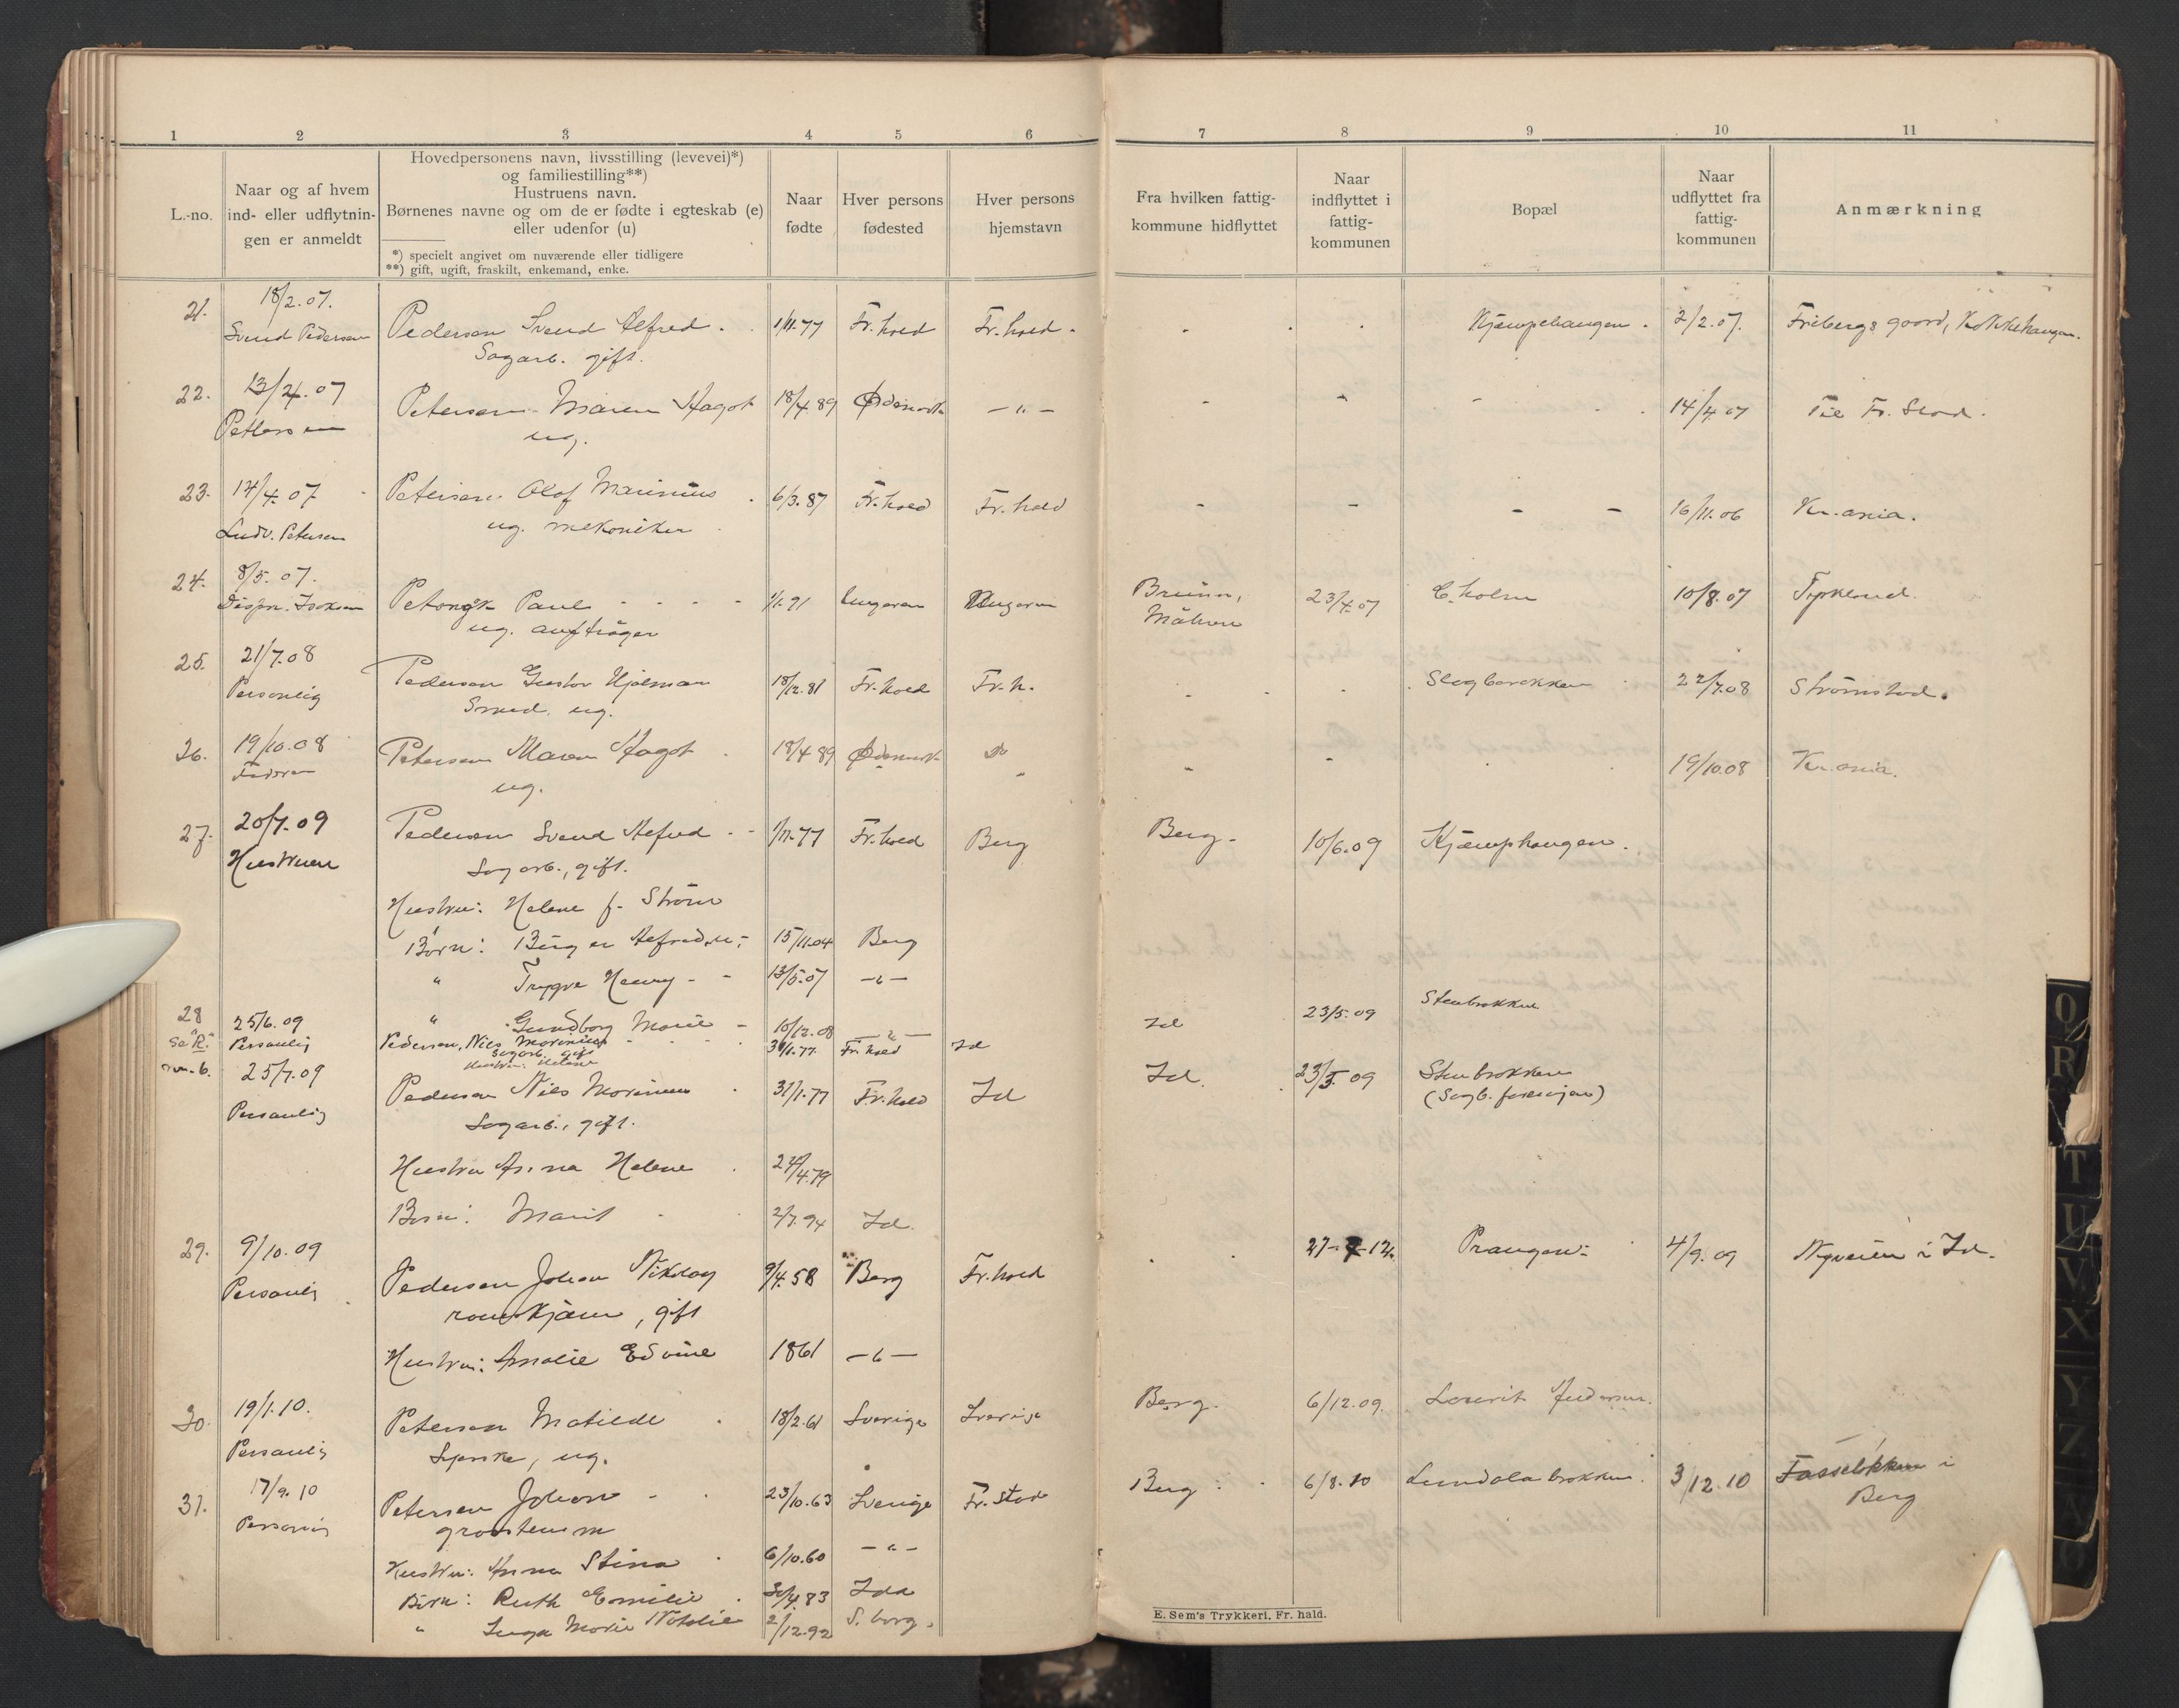 1 2 3 4 5 6 7 8 9 10 11
L.-no.
Naar og af hvem
ind- eller udflytnin-
gen er anmeldt
Hovedpersonens navn, livsstilling (levevei)*)
og familiestilling**)
Hustruens navn.
Børnenes navne og om de er fødte i egteskab (e)
eller udenfor (u)
*) specielt angivet om nuværende eller tidligere
**) gift, ugift, fraskilt, enkemand, enke.
Naar
fødte
Hver persons
fødested
Hver persons
hjemstavn
Fra hvilken fattig-
kommune hidflyttet
Naar
indflyttet i
fattig-
kommunen
Bopæl
Naar
udflyttet fra
fattig-
kommunen
Anmærkning
18/2.07.
21. Svend Pedersen Pedersen Svend Alfred. 1/11.77 Fr.hald Fr.hald. Kjæmpehaugen. 2/2.07. Fribergs gaard,
Sagarb. gift.
22. 13/4.07 Petersen Maren Hagot 18/4 89 - " - 14/4.07 Til Fr. Stad.
Pettersen ug.
23. 14/4.07 Petersen Olaf Marinius 6/3.87 Fr.hald Fr.hald - - - - 16/11.06 Kr.ania.
Ludv. Petersen ug. mekaniker
24. 8/5.07. Paul 1/1.91 Ungarn Ungarn Brünn, 23/4.07 C.holm 10/8.07 Tyskland.
ug. aufträger Mähren
25. 21/7.08 Pedersen Gustav Hjalmar 18/12.81 Fr.hald Fr.h. 22/7.08 Strømstad.
Personlig Smed, ug.
26. 19/10.08 Petersen Maren Hagot 18/4 89 Do 19/10.08 Kr.ania.
Faderen ug.
27. 20/7.09 Pedersen Svend Alfred 1/11.77 Fr.hald Berg Berg. 10/6.09 Kjæmphaugen.
Hustruen Sagarb., gift.
Hustru: Helene f. Strøm
Børn: Birger Alfred 15/11.04 Berg
" Trygve Henry 13/5.07 - " -
" Gundborg Marie 10/12.08 - " -
28 25/6.09 Pedersen, Nils Marinius 31/1.77 Fr.hald Id Id 23/5.09 Stenbrakken
se "R." Personlig Sagarb. gift
Hustru: Helene
nr. 6. 25/7.09 Pedersen Nils Marinius 31/1.77 Fr.hald Id Id. 23/5.09 Stenbrakken
Personlig Sagarb., gift.
Hustru Anna Helene 24/4.79
Børn: Marit 2/7.94 Id.
29. 9/10.09 Pedersen Johan Nikolay 9/4.58 Berg Fr.hald 27-7-12. Prangen 4/9.09 Nyveien i Id.
Personlig gift
Hustru: Amalie Edvine 1861 - " -
30. 19/1.10. Petersen Matilde 18/2.61 Sverige Sverige Berg. 6/12.09.
Personlig Syerske, ug.
31. 17/9.10 Petersen Johan 23/10.63 Sverige Fr.stad Berg 6/8.10 3/12.10 i
Personlig Berg
Hustru: Anna Stina 6/10.60 - " -
Børn: Ruth Emilie 30/4.83 Idd
" Inga Marie Natalie 2/12.92 S.borg.
E. Sem's Trykkeri, Fr. hald.
Q
R
T
U
V
X
Y
Z